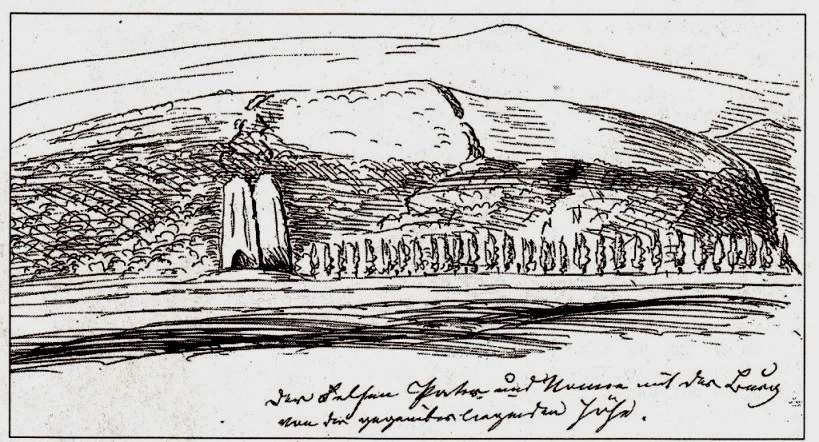 Der Felsen Pater und Nonne mit der Burg
von der gegenüber liegenden Höhe.